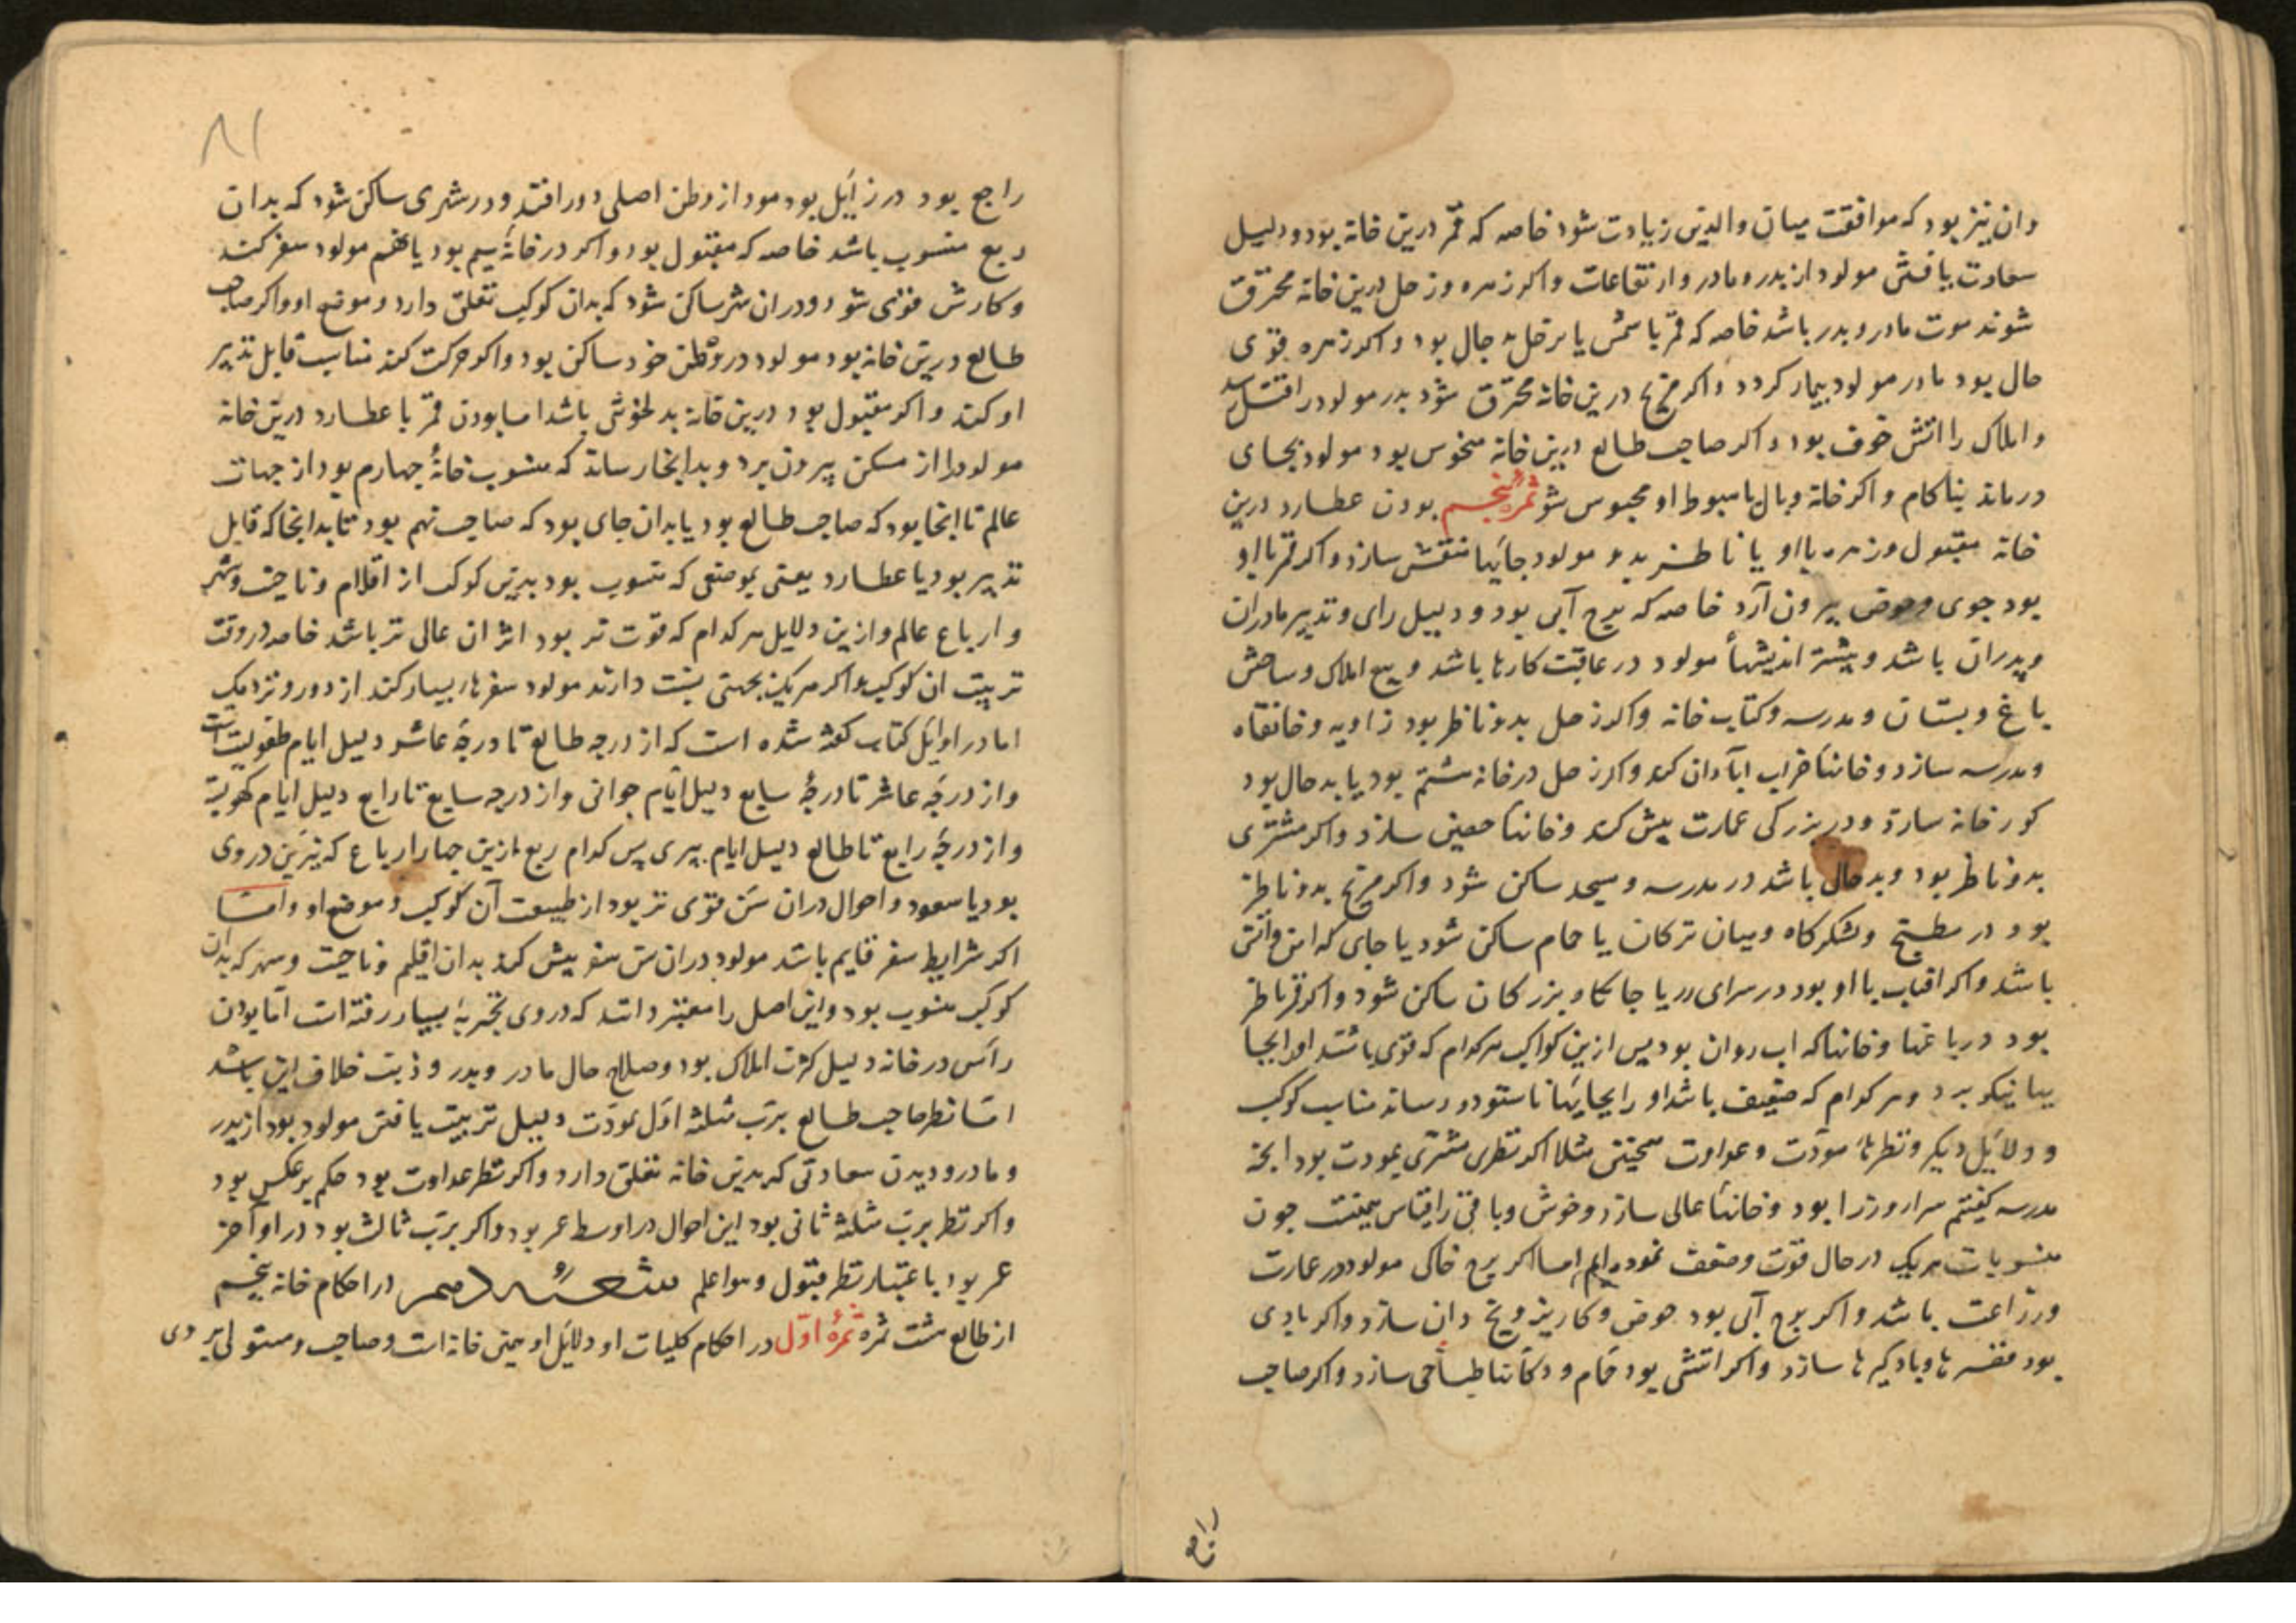 وان نیز بود که موافقت میان والدین زیادت شود خاصه که قمر درین خانه بود و دلیل
سعادت یافتن مولود از پدر و مادر و ارتفاعات و اکر زهره و زحل درین خانه محترق
شوند موت مادر و پدر باشد خاصه که قمر با شمس یا بر حال بود و اکر زهره قوی
حال بود مادر مولود بیمار کردد و اکر مریخ درین خانه محترق شود پدر مولود را
و املاک را اتش خوف بود و اکر صاحب طالع درین خانه منحوس بود مولود بجای
درماند بناکام و اکر خانه وبال یا هبوط او محبوس شود ثمره پنجم بودن عطارد درین
خانه مقبول و زهره با او یا ناظر بدو مولود جایها منقش سازد و اکر قمر با او
بود جوی و حوض بیرون آرد خاصه که برج آبی بود و دلیل رای و تدبیر مادران
و پدران باشد و بیشتر اندیشهأ مولود در عاقبت کارها باشد و بیع املاک و ساختن
باغ و بستان و مدرسه و کتاب خانه و اکر زحل بدو ناظر بود زاویه و خانقاه
و مدرسه سازد و خانها خراب ابآدان کند و اکر زحل در خانه ششم بود یا بد حال بود
کورخانه سازد و در بزرکی عمارت بیش کند و خانها سازد و اکر مشتری
بدو ناظر بود و بد حال باشد در مدرسه و مسجد ساکن شود و اکر مریخ بدو ناظر
بود در مطبخ و لشکرکاه و میان ترکان یا حمام ساکن شود یا جای که اهن و اتش
باشد و اکر افتاب با او بود در سرای یا جایکاه بزرکان ساکن شود و اکر قمر ناظر
بود در باغها و خانها که اب روان بود پس ازین کواکب هرکدام که قوی باشد اورا بجا
یها نیکو برد و هرکدام که ضعیف باشد او را بجایها ناستوده رساند مناسب کوکب
و دلایل دیکر و نظرهأ مودت و عداوت همچنین مثلا اکر نظر مشتری بمودت بود انجه
مدرسه کفتیم سرا و وزرا بود و خانها عالی سازد و خوش و باقی را قیاس چون
منسوبات هریک در حال قوت و ضعف نموده ایم اما اکر برج خاکی مولود در عمارت
و زراعت باشد و اکر برج آبی بود حوض و کاریز و یخ دان سازد و اکر بادی
بود ها و بادکیرها سازد و اکر اتشی بود حمام و دکانها طباخی سازد و اکر صاحب
راجع
۸۱
راجع بود در زایل بود مولود از وطن اصلی دور افتد و در شهری ساکن شود که بدان
ربع منسوب باشد خاصه که مقبول بود و اکر در خانهٔ سیم بود یا نهم مولود سفر کند
و کارش قوی شود و دران شهر ساکن شود که بدان کوکب تعلق دارد و موضع او و اکر صاحب
طالع درین خانه بود مولود در وطن خود ساکن بود و اکر حرکت کند مناسب قابل تدبیر
او کند و اکر مقبول بود درین خانه بدلخوشی باشد اما بودن قمر با عطارد درین خانه
مولود را از مسکن بیرون برد و بدانجا رساند که منسوب خانهٔ چهارم بود از جهات
عالم تا انجا بود که صاحب طالع بود یا بدان جای بود که صاحب نهم بود تا بدانجا که قابل
تدبیر بود یا عطارد یعنی بموضعی که منسوب بود بدین کوکب از اقلام و ناحیت و شهر
و ارباع عالم و ازین دلایل هرکدام که قوت تر بود اثر ان عالی تر باشد خاصه در وقت
تربیت ان کوکب و اکر هریک بجهتی نسبت دارند مولود سفرها بسیار کند از دور و نزدیک
اما در اوایل کتاب کفته شده است که از درجه طالع تا درجهٔ عاشر دلیل ایام طفولیت است
و از درجهٔ عاشر تا درجهٔ سابع دلیل ایام جوانی و از درجه سابع تا رابع دلیل ایام کهولت
و از درجهٔ رابع تا طالع دلیل ایام پیری پس کدام ربع ازین چهار ارباع که نیرین در وی
بود یا سعود و احوال دران سن قوی تر بود از طبیعت آن کوکب و موضع او و اما
اکر شرایط سفر قایم باشد مولود دران سن سفر بیش کند بدان اقلیم و ناحیت و شهر که بدان
کوکب منسوب بود و این اصل را معتبر دانند که در وی تجربهٔ بسیار رفته است اما بودن
رأس در خانه دلیل کثرت املاک بود و صلاح حال مادر و پدر و ذنب خلاف این باشد
اما نظر صاحب طالع برب مثلثه اول بمودت دلیل تربیت یافتن مولود بود از پدر
و مادر و دیدن سعادتی که بدین خانه تعلق دارد و اکر نظر عداوت بود حکم برعکس بود
و اکر نظر برب مثلثه ثانی بود این احوال در اوسط عمر بود و اکر برب ثالث بود در اواخر
عمر بود باعتبار نظر قبول و هو اعلم شعبه در احکام خانه پنجم
از طالع هشت ثمره ثمرهٔ اول در احکام کلیات او دلایل او یعنی خانه است و صاحب و مستولی بر وی